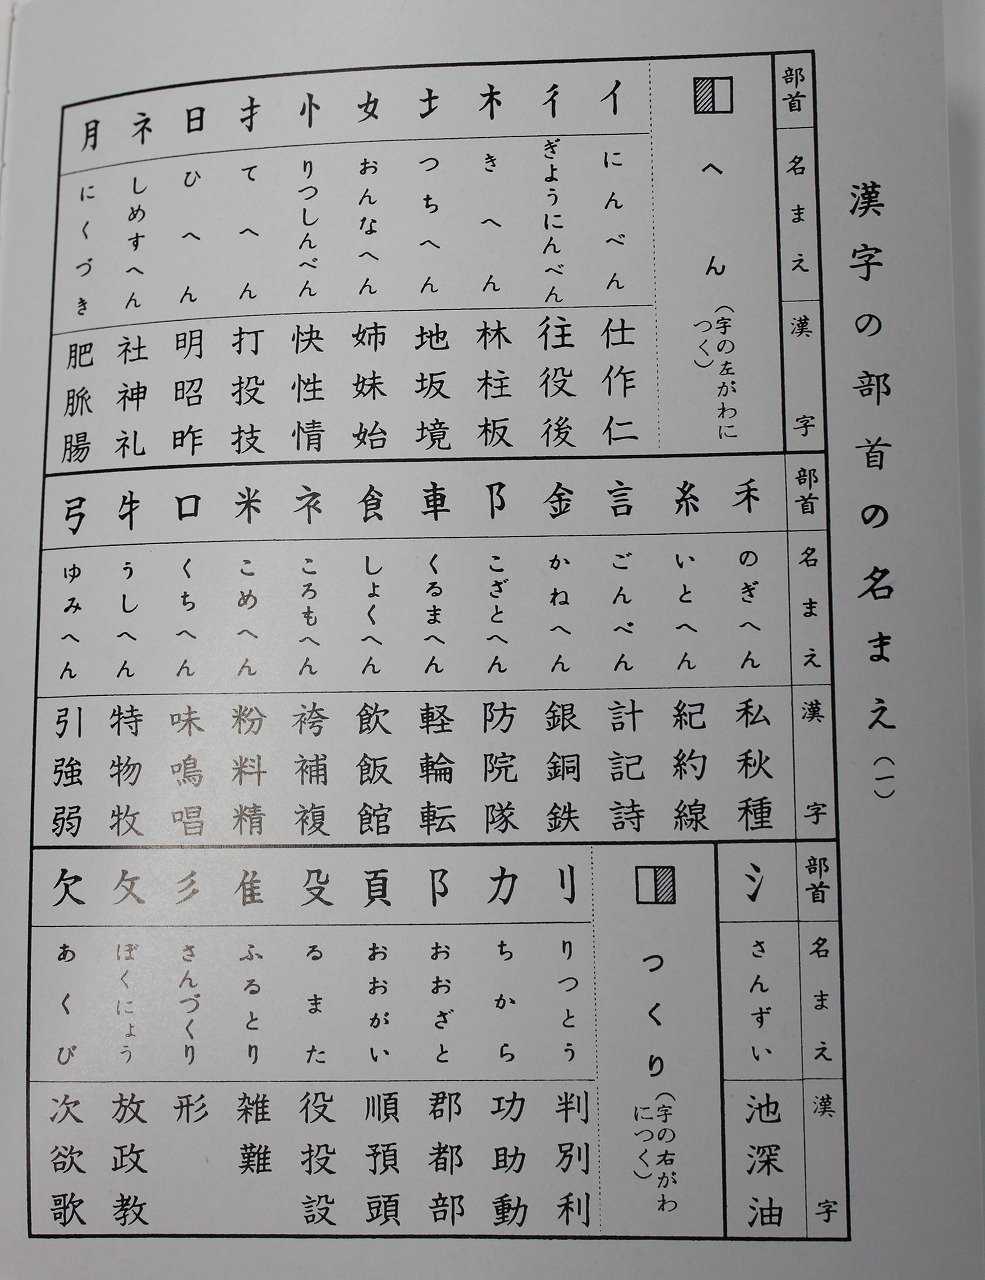 漢字の部首の名まえ(一)
部首 名まえ 漢字
へん(字の左がわにつく)
亻 にんべん 仕作仁
彳 ぎようにんべん 往役後
木 きへん 林柱板
土 つちへん 地坂境
女 おんなへん 姉妹始
忄 りつしんべん 快性情
扌 てへん 打投技
日 ひへん 明昭昨
礻 しめすへん 社神礼
月 にくづき 肥脈腸
部首 名まえ 漢字
禾 のぎへん 私秋種
糸 いとへん 紀約線
言 ごんべん 計記詩
金 かねへん 銀銅鉄
阝 こざとへん 防院隊
車 くるまへん 軽輪転
飠 しょくへん 飲飯館
衤 ころもへん 袴補複
米 こめへん 粉料精
口 くちへん 味鳴唱
牜 うしへん 特物牧
弓 ゆみへん 引強弱
部首 名まえ 漢字
氵 さんずい 池深油
つくり(字の右がわにつく)
刂 りつとう 判別利
力 ちから 功助動
阝 おおざと 郡都部
頁 おおがい 順預頭
殳 るまた 役投設
隹 ふるとり 雑難
彡 さんづくり 形
攵 ぼくにょう 放政教
欠 あくび 次欲歌